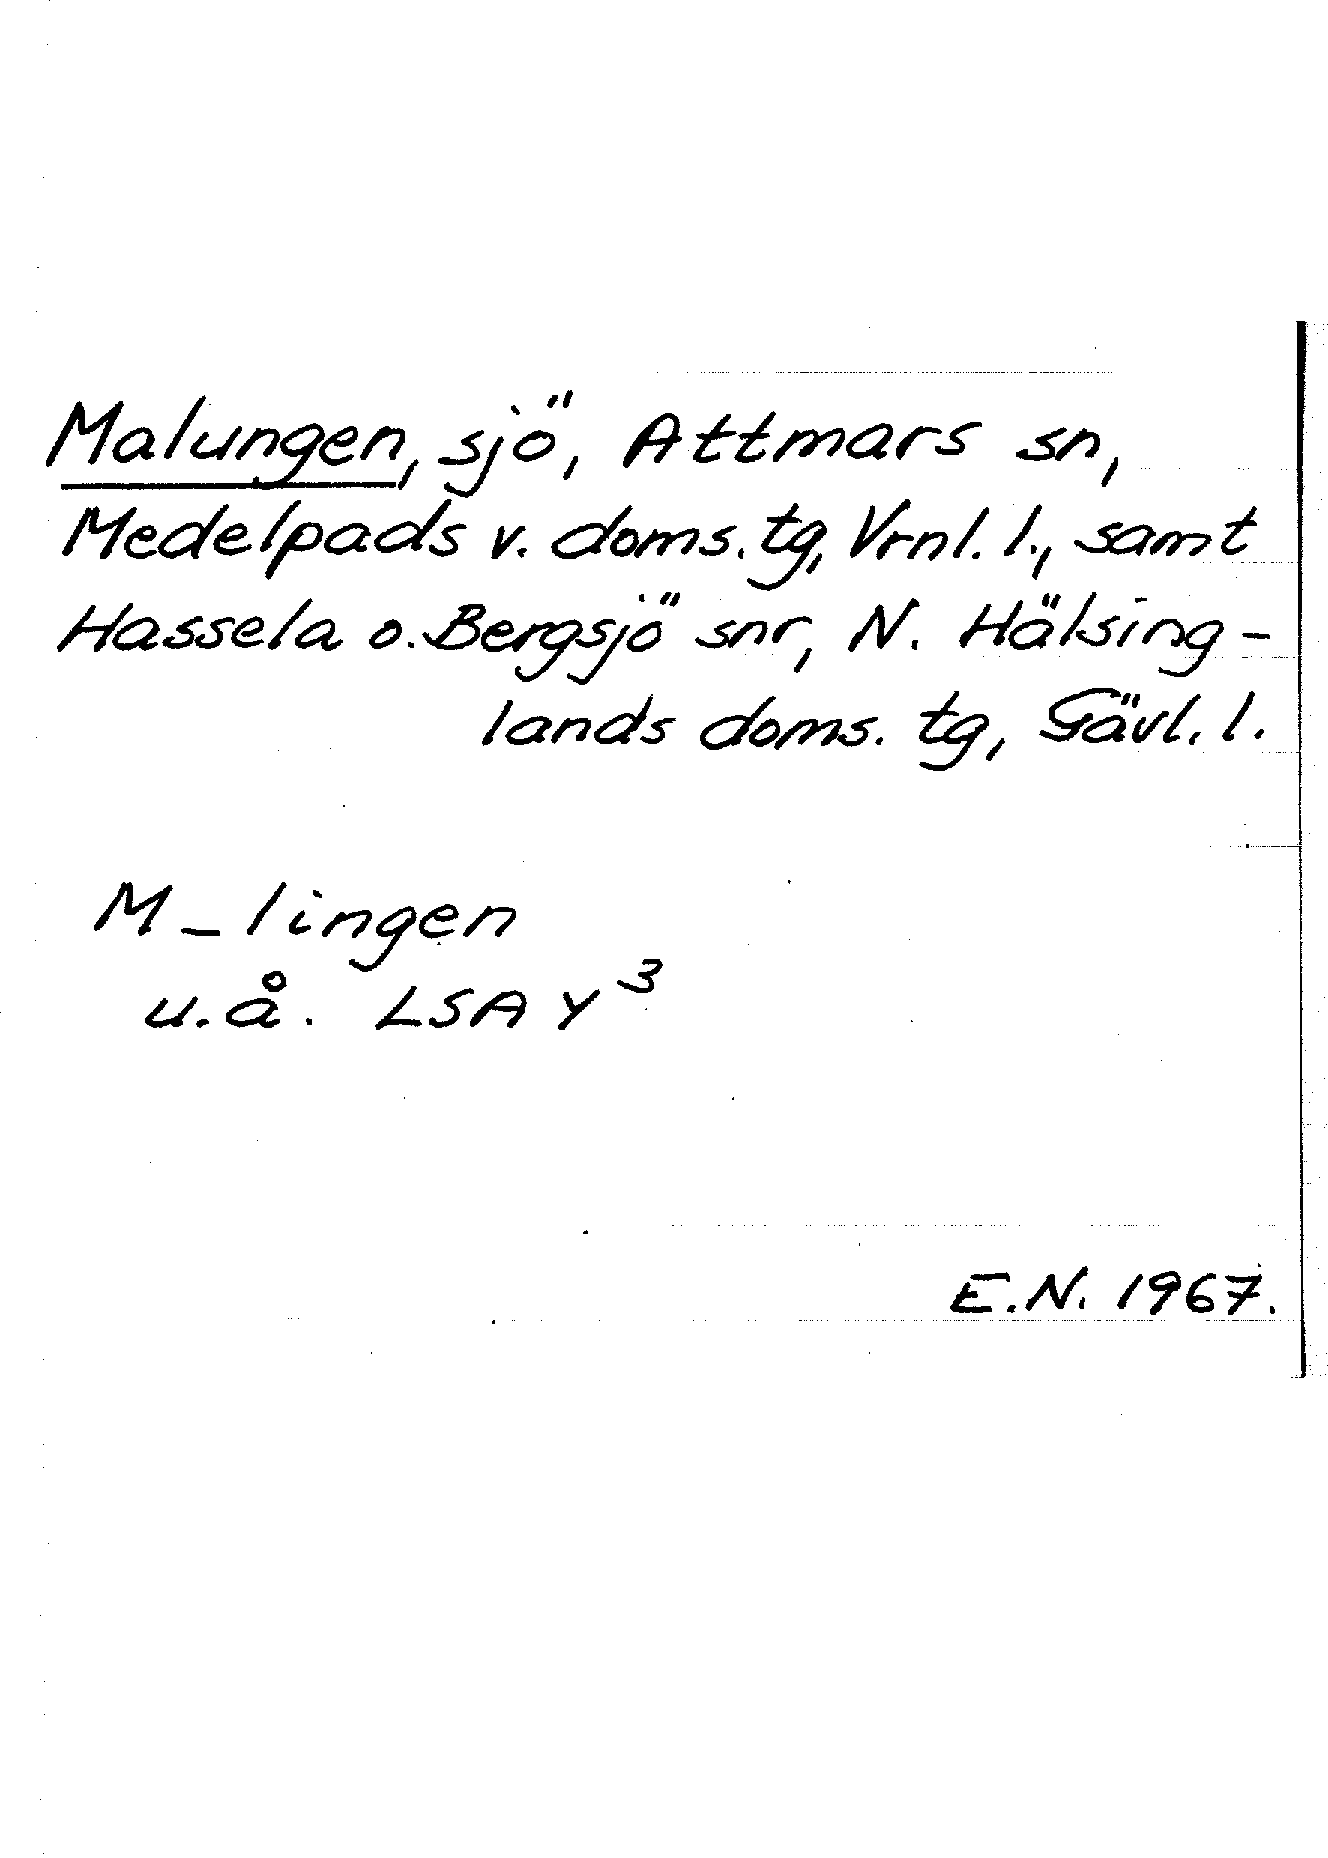 Malungen, sjö, Attmars sn,
Medelpads v. doms. tg, Vrnl. l., samt
Hassela o. Bergsjö snr, N. Hälsing-
lands doms. tg, Gävl. l.
M_lingen
u.å. LSA Y³
E.N. 1967.